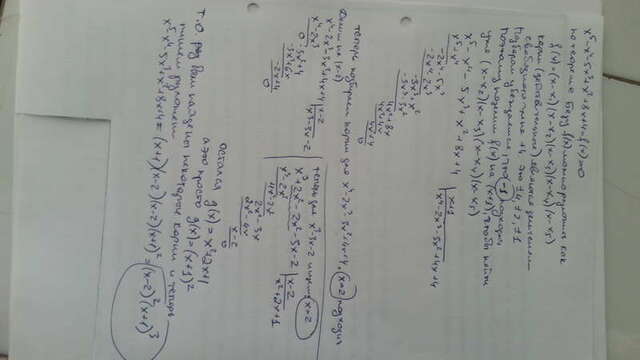 x⁵-x⁴-5x³+x²+8x+4=f(x)=0
по теореме Безу f(x) можно разложить как
f(x)=(x-x₁)(x-x₂)(x-x₃)(x-x₄)(x-x₅)
корни (действительные) являются делителем
свободного члена +4 это ±4, ±2, ±1
Подбором убеждаемся, что (-1) подходит
Поэтому поделим f(x) на (x+1), чтобы найти
уже (x-x₂)(x-x₃)(x-x₄)(x-x₅)
x⁵-x⁴-5x³+x²+8x+4 | x+1
x⁵+x⁴ x⁴-2x³-3x²+4x+4
-2x⁴-5x³
-2x⁴-2x³
-3x³+x²
-3x³-3x²
4x²+8x
4x²+4x
4x+4
0
теперь подбираем корни для x⁴-2x³-3x²+4x+4, x=2 подходит
Делим на (x-2)
x⁴-2x³-3x²+4x+4 | x-2
x⁴-2x³ x³-3x-2
0-3x²+4
-3x²+6x
-2x+4
0
теперь для x³-3x-2 ищем x=2
x³+2x²-2x²-3x-2 | x-2
x³-2x² x²+2x+1
4x²-2x
2x²-3x
2x²-4x
x-2
0
остался g(x)=x²+2x+1
а это просто g(x)=(x+1)²
Т.О. ряд Вам найдены некоторые корни и теперь
пишем разложен
x⁵-x⁴-5x³+x²+8x+4=(x+1)(x-2)(x-2)(x+1)²=(x-2)²(x+1)³